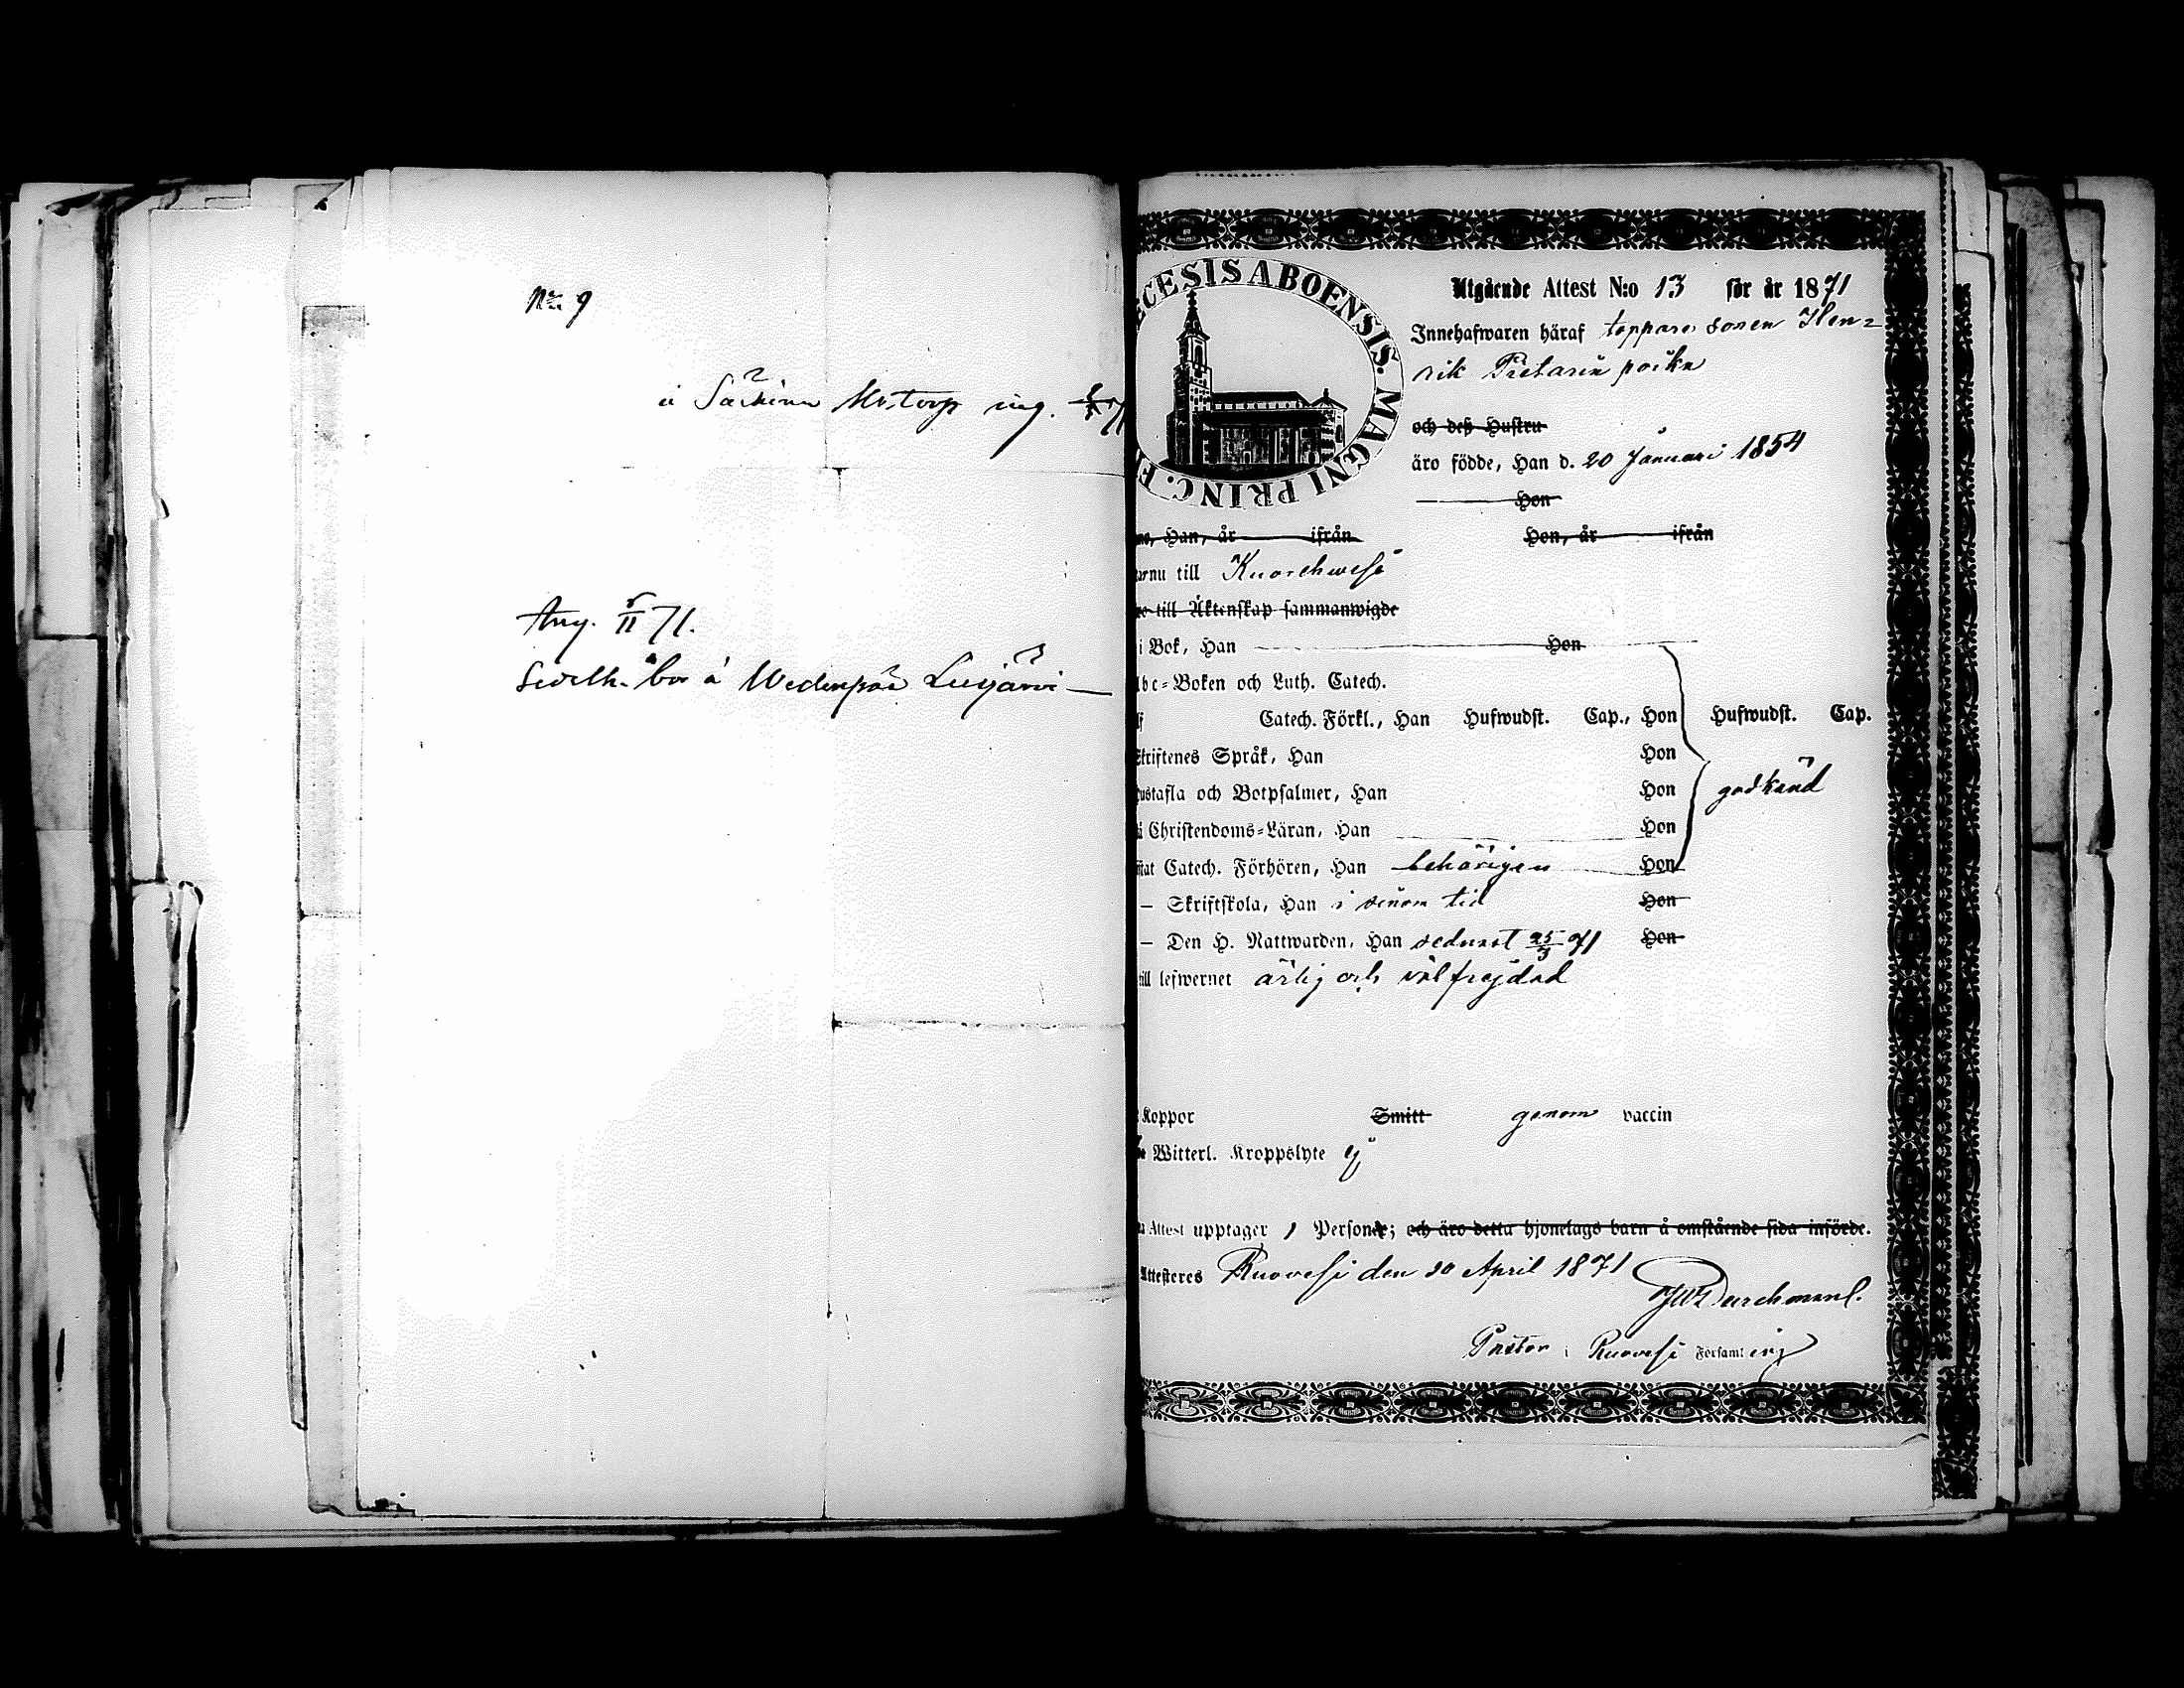 No 9
å Särkinen Ms. torp ing.
Ang. 5/11 71.
bor å Wedenpää
ECESIS ABOENSIS. MAGNI PRINC. F
Utgående Attest N:o 13 för år 1871
Innehafwaren häraf torpare sonen Hen=
rik Pietarin poika
och deß Hustru
äro födde, Han d. 20 Januari 1854
Hon
Han, år ifrån Hon, år ifrån
nu till Kuorehwesi
till Äktenskap sammanwigde
i Bok, Han Hon
Abc=Boken och Luth. Catech.
Catech. Förkl., Han Hufwudst. Cap., Hon Hufwudst. Cap.
Skriftenes Språk, Han Hon
ustafla och Botpsalmer, Han Hon godkänd
Christendoms=Läran, Han Hon
Catech. Förhören, Han behörigen Hon
— Skriftskola, Han i sinom tid Hon
— Den H. Nattwarden, Han sednast 25/3 71 Hon
till lefwernet ärlig och välfrejdad
Koppor Smitt genom vaccin
Witterl. Kroppslyte ej
Attest upptager 1 Person; och äro detta hjonelags barn å omstående sida införde.
Attesteras Ruovesi den 20 April 1871
Durchman.
Pastor i Ruovesi Församling